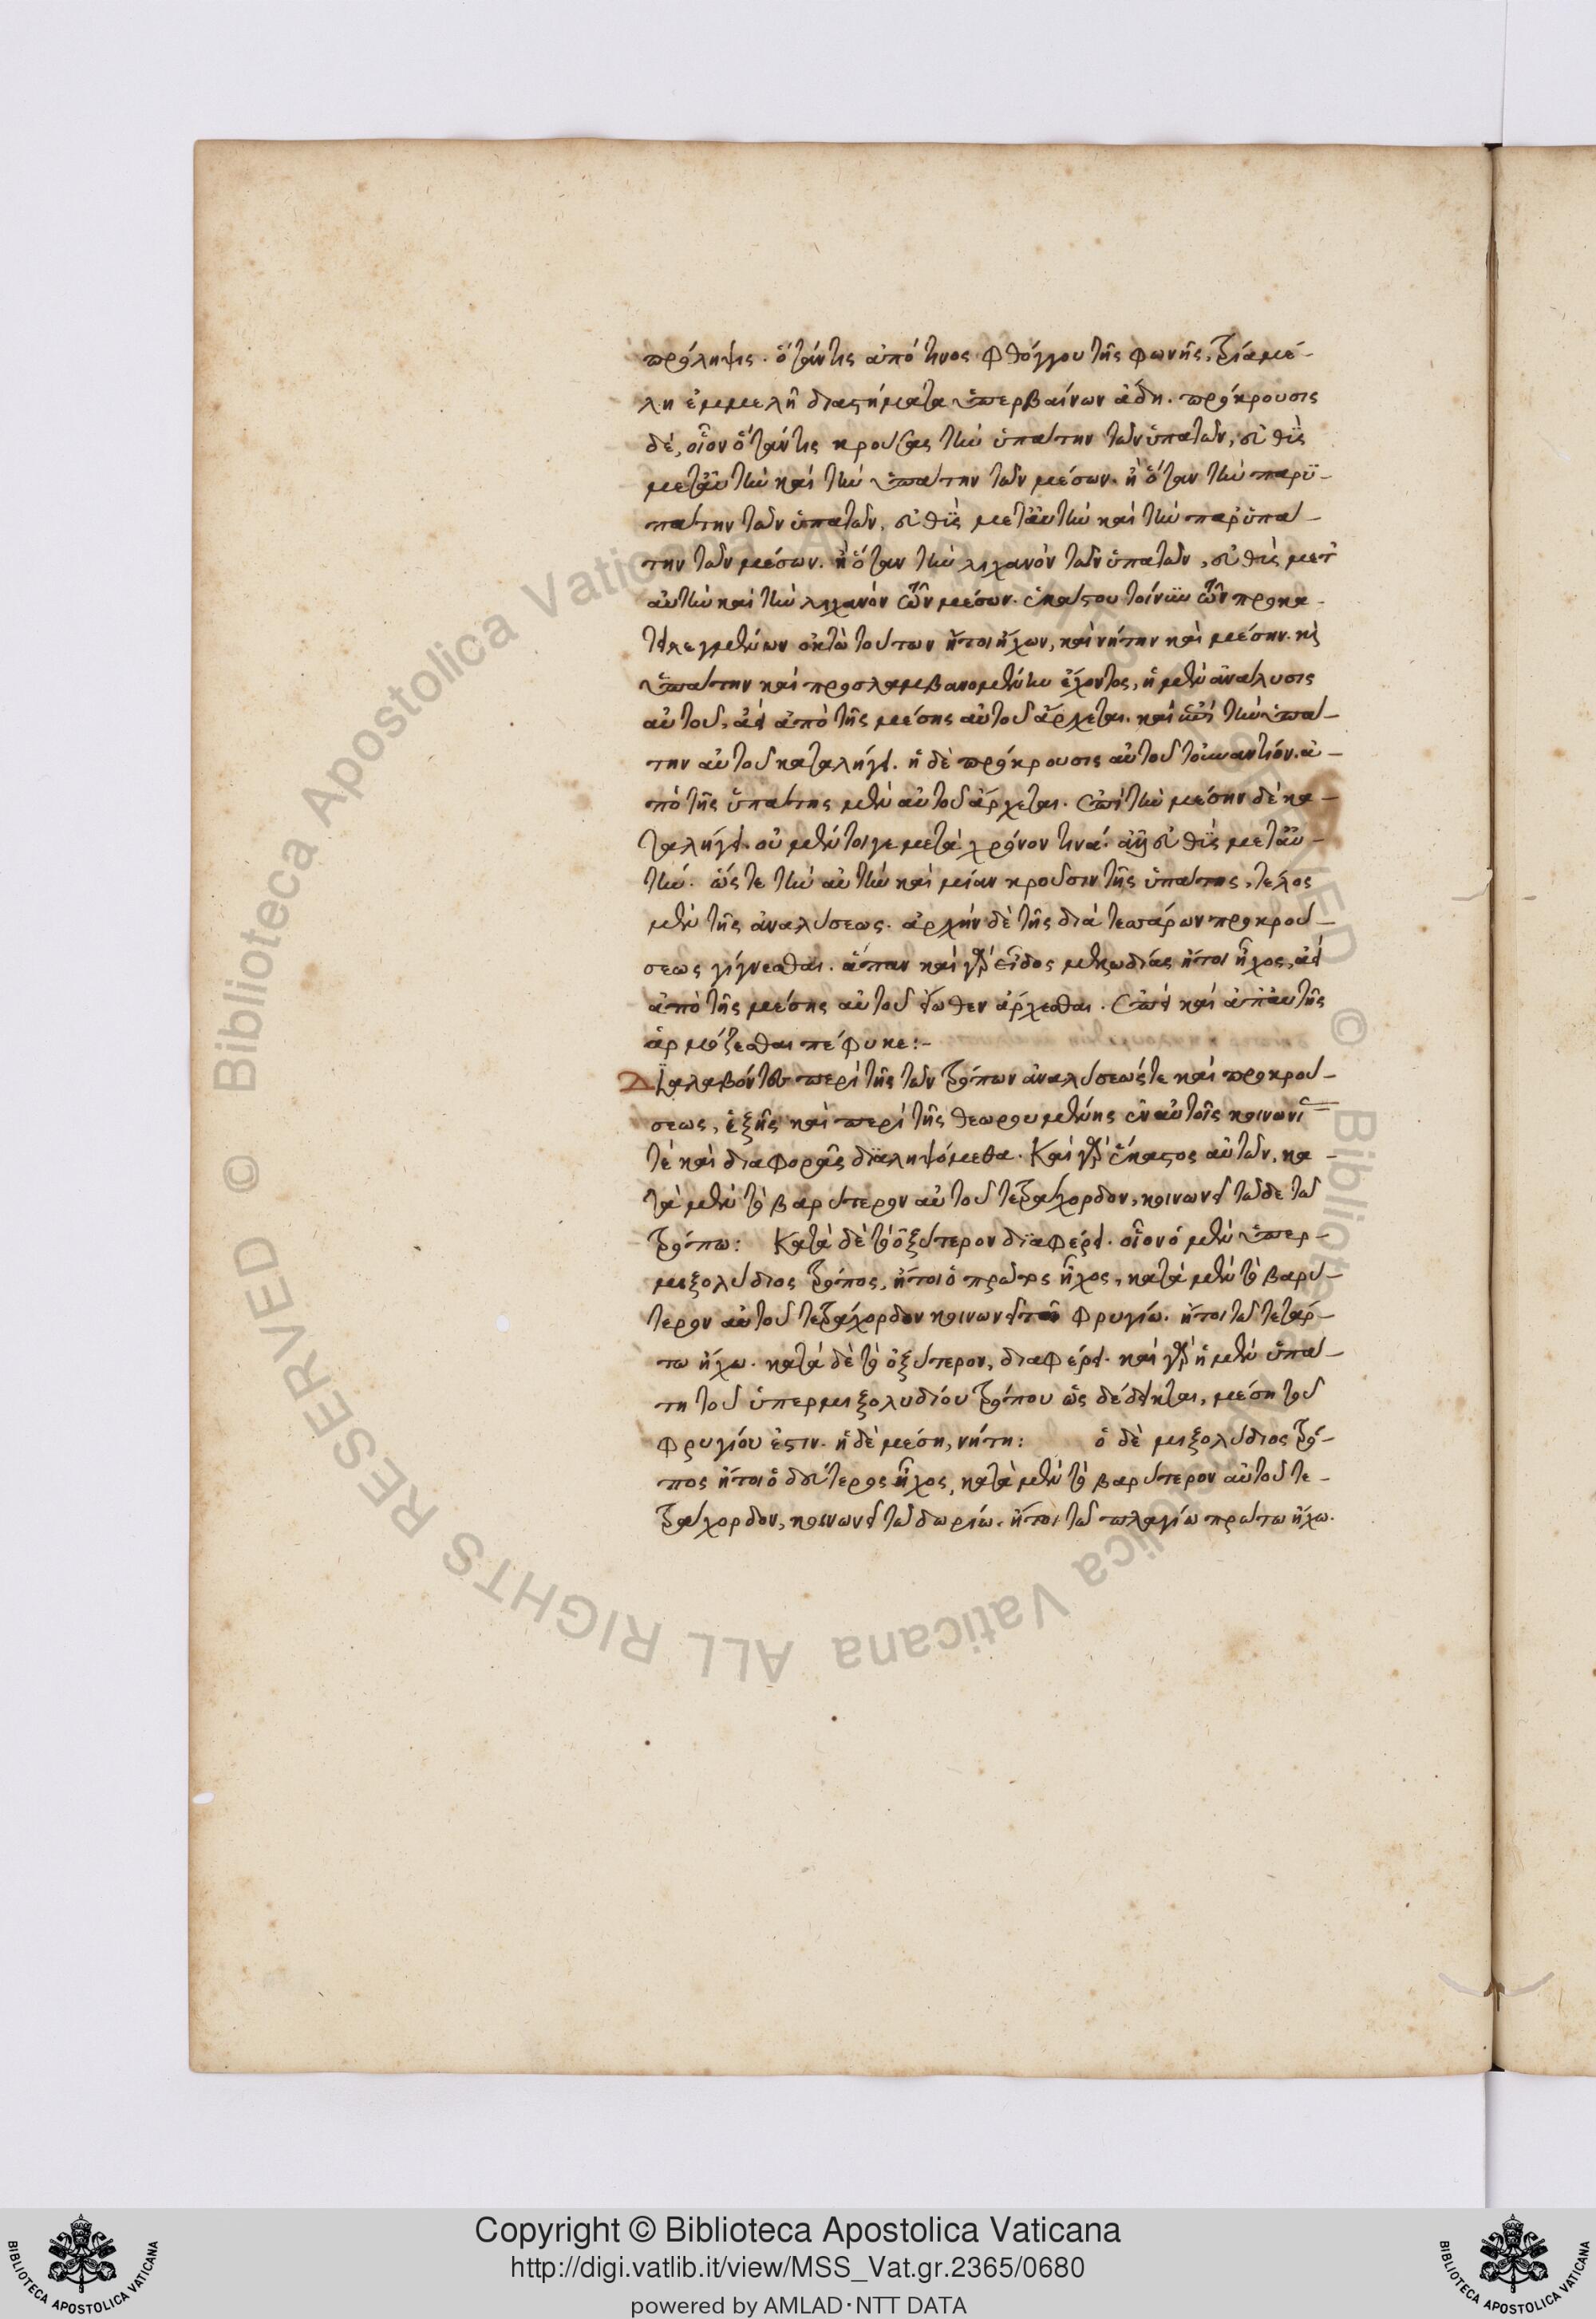 πρόληψις. ὅταν τις ἀπό τινος φθόγγου τῆς φωνῆς, τρία μέ-
λη ἐμμελῆ διαστήματα ὑπερβαίνων ἄδῃ. πρόκρουσις
δέ, οἷον ὅταν τις κρούσας τὴν ὑπάτην τῶν ὑπατῶν, εὐθὺς
μετ' αὐτὴν καὶ τὴν ὑπάτην τῶν μέσων. ἢ ὅταν τὴν παρϋ-
πάτην τῶν ὑπατῶν, εὐθὺς μετ' αὐτὴν καὶ τὴν παρυπά-
την τῶν μέσων. ἢ ὅταν τὴν λιχανὸν τῶν ὑπατῶν, εὐθὺς μετ'
αὐτὴν καὶ τὴν λιχανὸν τῶν μέσων. ἑκάστου τοίνυν τῶν προκα-
τειλεγμένων ὀκτὼ τούτων ἤτοι ἤχων, καὶ νήτην καὶ μέσην. καὶ
ὑπάτην καὶ προσλαμβανομένην ἔχοντος, ἡ μὲν ἀνάλυσις
αὐτοῦ, ἀεὶ ἀπὸ τῆς μέσης αὐτοῦ ἄρχεται. καὶ ἐπὶ τὴν ὑπά-
την αὐτοῦ καταλήγει. ἡ δὲ πρόκρουσις αὐτοῦ τοὐναντίον. ἀ-
πὸ τῆς ὑπάτης μὲν αὐτοῦ ἄρχεται. ἐπὶ τὴν μέσην δὲ κα-
ταλήγει. οὐ μέντοιγε μετὰ χρόνον τινά. ἀλλ' εὐθὺς μετ' αὐ-
τήν. ὥστε τὴν αὐτὴν καὶ μίαν κροῦσιν τῆς ὑπάτης, τέλος
μὲν τῆς ἀναλύσεως. ἀρχὴν δὲ τῆς διὰ τεσσάρων προκρού-
σεως γίγνεσθαι. ἅπαν καὶ γὰρ εἶδος μελῳδίας ἤτοι ἦχος, ἀεὶ
ἀπὸ τῆς μέσης αὐτοῦ εἴωθεν ἄρχεσθαι. ἐπεὶ καὶ ἀπ' αὐτῆς
ἁρμόζεσθαι πέφυκε:-
Διαλαβόντες περὶ τῆς τῶν τρόπων ἀναλύσεώς τε καὶ προκρού-
σεως, ἑξῆς καὶ περὶ τῆς θεωρουμένης ἐν αὐτοῖς κοινωνί
τὲ καὶ διαφορᾶς διαληψόμεθα. Καὶ γὰρ ἕκαστος αὐτῶν, κα-
τὰ μὲν τὸ βαρύτερον αὐτοῦ τετράχορδον, κοινωνεῖ τῶδε τῶ
τρόπω: Κατὰ δὲ τὸ ὀξύτερον διαφέρει. οἷον ὁ μὲν ὑπερ-
μιξολύδιος τρόπος, ἤτοι ὁ πρῶτος ἦχος, κατὰ μὲν τὸ βαρύ-
τερον αὐτοῦ τετράχορδον κοινωνεῖ τῶ φρυγίω. ἤτοι τῶ τετάρ-
τω ἤχω. κατὰ δὲ τὸ ὀξύτερον, διαφέρει. καὶ γὰρ ἡ μὲν ὑπά-
τη τοῦ ὑπερμιξολυδίου τρόπου ὡς δέδεικται, μέση τοῦ
φρυγίου ἐστιν. ἡ δὲ μέση, νήτη: ὁ δὲ μιξολύδιος τρό-
πος ἤτοι ὁ δεύτερος ἦχος, κατὰ μὲν τὸ βαρύτερον αὐτοῦ τε-
τράχορδον, κοινωνεῖ τῶ δωρίω. ἤτοι τῶ πλαγίω πρώτω ἤχω.
Copyright © Biblioteca Apostolica Vaticana
http://digi.vatlib.it/view/MSS_Vat.gr.2365/0680
powered by AMLAD·NTT DATA
© Biblioteca Apostolica Vaticana ALL RIGHTS RESERVED
© Biblioteca Apostolica Vaticana ALL RIGHTS RESERVED
BIBLIOTECA APOSTOLICA VATICANA
BIBLIOTECA APOSTOLICA VATICANA